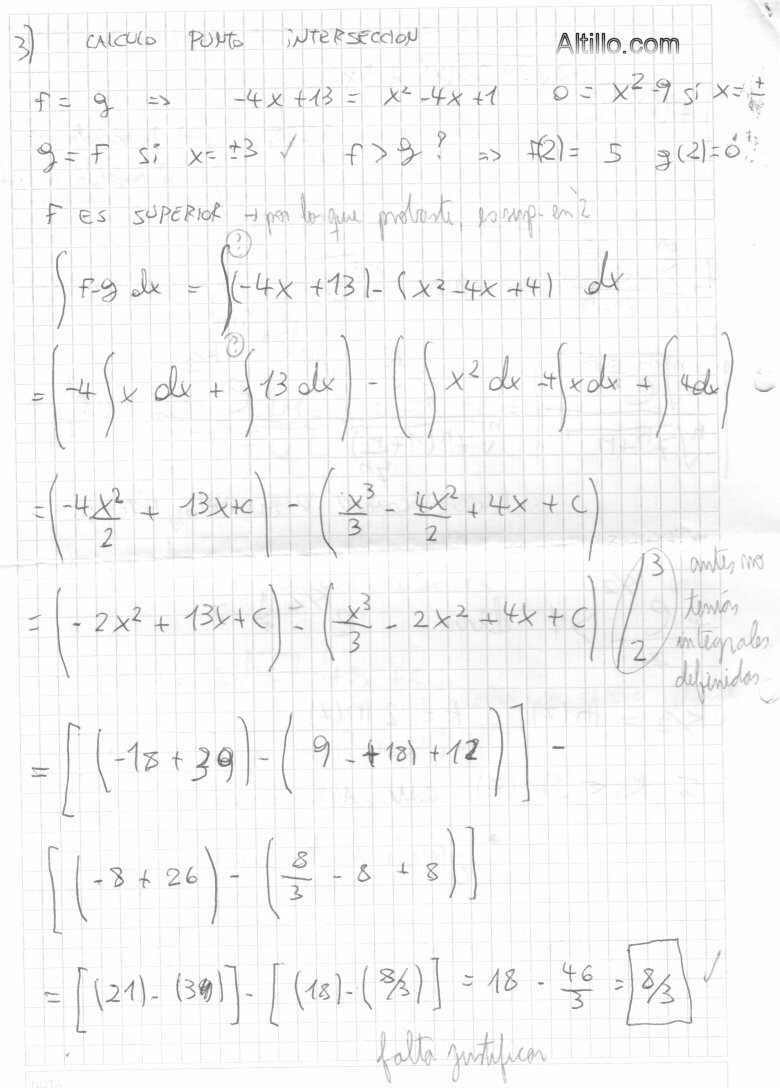 3) CALCULO PUNTO INTERSECCION
Altillo.com
f = g => -4x+13 = x² -4x+1 0 = x²-9 si x=±
g = f si x= ±3 ✓ f > g ? => f(2) = 5 g(2)=0
F ES SUPERIOR → por lo que probaste, es sup. en 2
∫ f-g dx = ∫ (-4x +13) - (x² -4x +4) dx
= (-4∫x dx + ∫13 dx) - (∫x² dx -4∫x dx + ∫4dx) =
= (-4x²/2 + 13x+c) - (x³/3 - 4x²/2 + 4x + c)
= (-2x² + 13x+c) - (x³/3 - 2x² + 4x + c) /³₂ antes no
tenías
integrales
definidas
= [(-18 + 39) - (9 - (+18) + 12)] -
[(-8 + 26) - (8/3 - 8 + 8)]
= [(21) - (3)] - [(18) - (8/3)] = 18 - 46/3 = 8/3 ✓
falta justificar